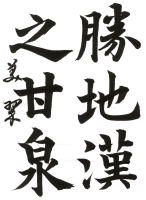 勝地漢
之甘泉
美翠